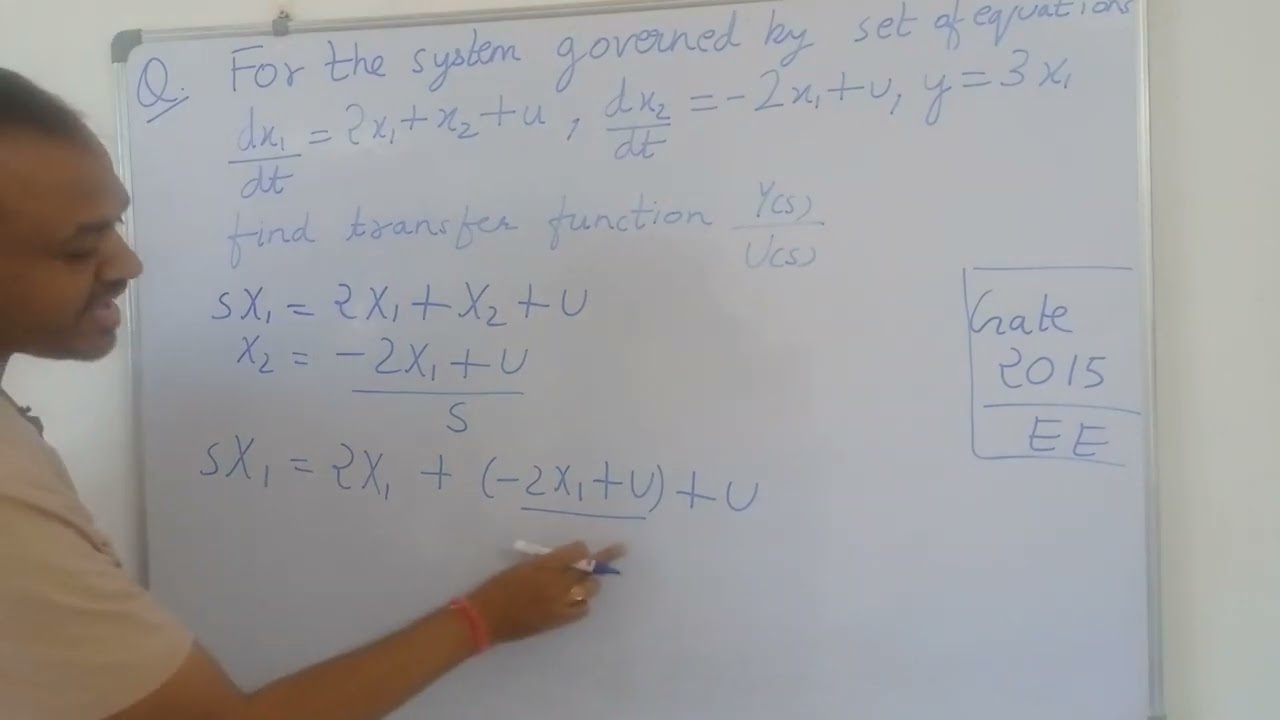 Q. For the system governed by set of equations
dx₁/dt = 2x₁ + x₂ + u , dx₂/dt = -2x₁ + u, y = 3x₁
find transfer function Y(s)/U(s)
sX₁ = 2X₁ + X₂ + U
X₂ = -2X₁ + U
S
sX₁ = 2X₁ + (-2X₁ + U) + U
Gate
2015
EE